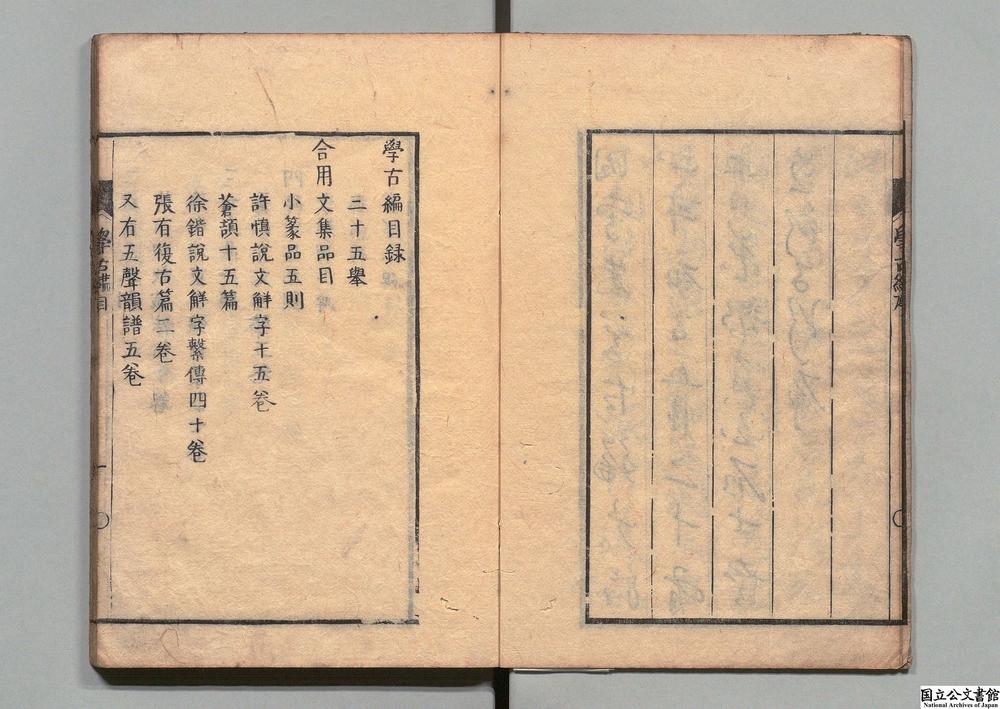 學古編目録
三十五舉
合用文集品目
小篆品五則
許慎說文解字十五卷
蒼頡十五篇
徐鍇說文解字繫傳四十卷
張有復古篇二卷
又右五聲韻譜五卷
學古編目
一
學古編序
国立公文書館
National Archives of Japan